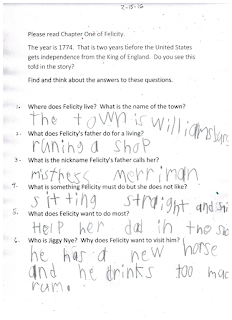 2-15-16
Please read Chapter One of Felicity.
The year is 1774. That is two years before the United States
gets independence from the King of England. Do you see this
told in the story?
Find and think about the answers to these questions.
1. Where does Felicity live? What is the name of the town?
the town is williamsburg
2. What does Felicity's father do for a living?
runing a shop
3. What is the nickname Felicity's father calls her?
mistress merriman
4. What is something Felicity must do but she does not like?
sitting straight and
5. What does Felicity want to do most?
Help her dad in the
6. Who is Jiggy Nye? Why does Felicity want to visit him?
he has a new horse
and he drinks too
rum.